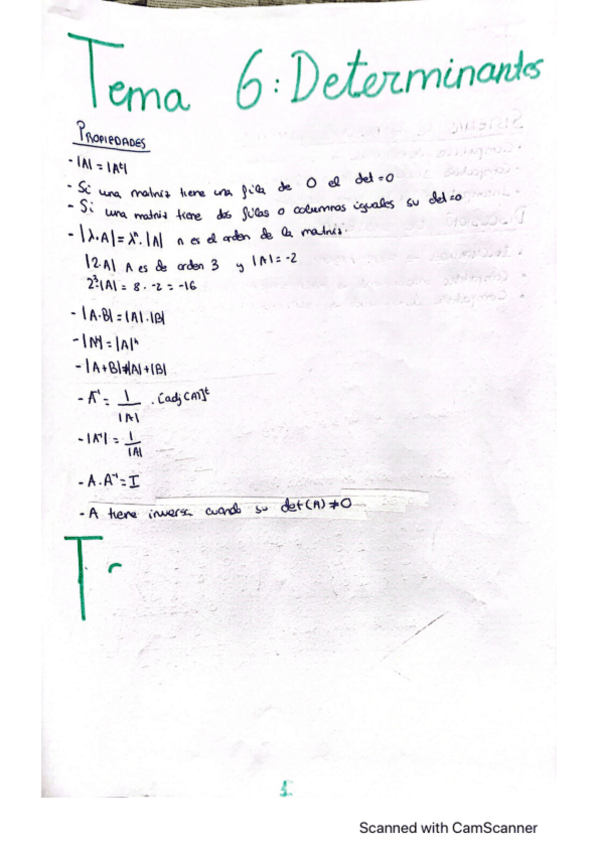 Tema 6: Determinantes
PROPIEDADES
- |A| = |Aᵗ|
- Si una matriz tiene una fila de 0 el det = 0
- Si una matriz tiene dos filas o columnas iguales su det = 0
- |λ·A| = λⁿ·|A| n es el orden de la matriz.
|2·A| A es de orden 3 y |A| = -2
2³·|A| = 8 · -2 = -16
- |A·B| = |A|·|B|
- |Aⁿ| = |A|ⁿ
- |A+B| ≠ |A| + |B|
- A⁻¹ = 1/|A| · [adj(A)]ᵗ
- |A⁻¹| = 1/|A|
- A·A⁻¹ = I
- A tiene inversa cuando su det(A) ≠ 0
T
1
Scanned with CamScanner